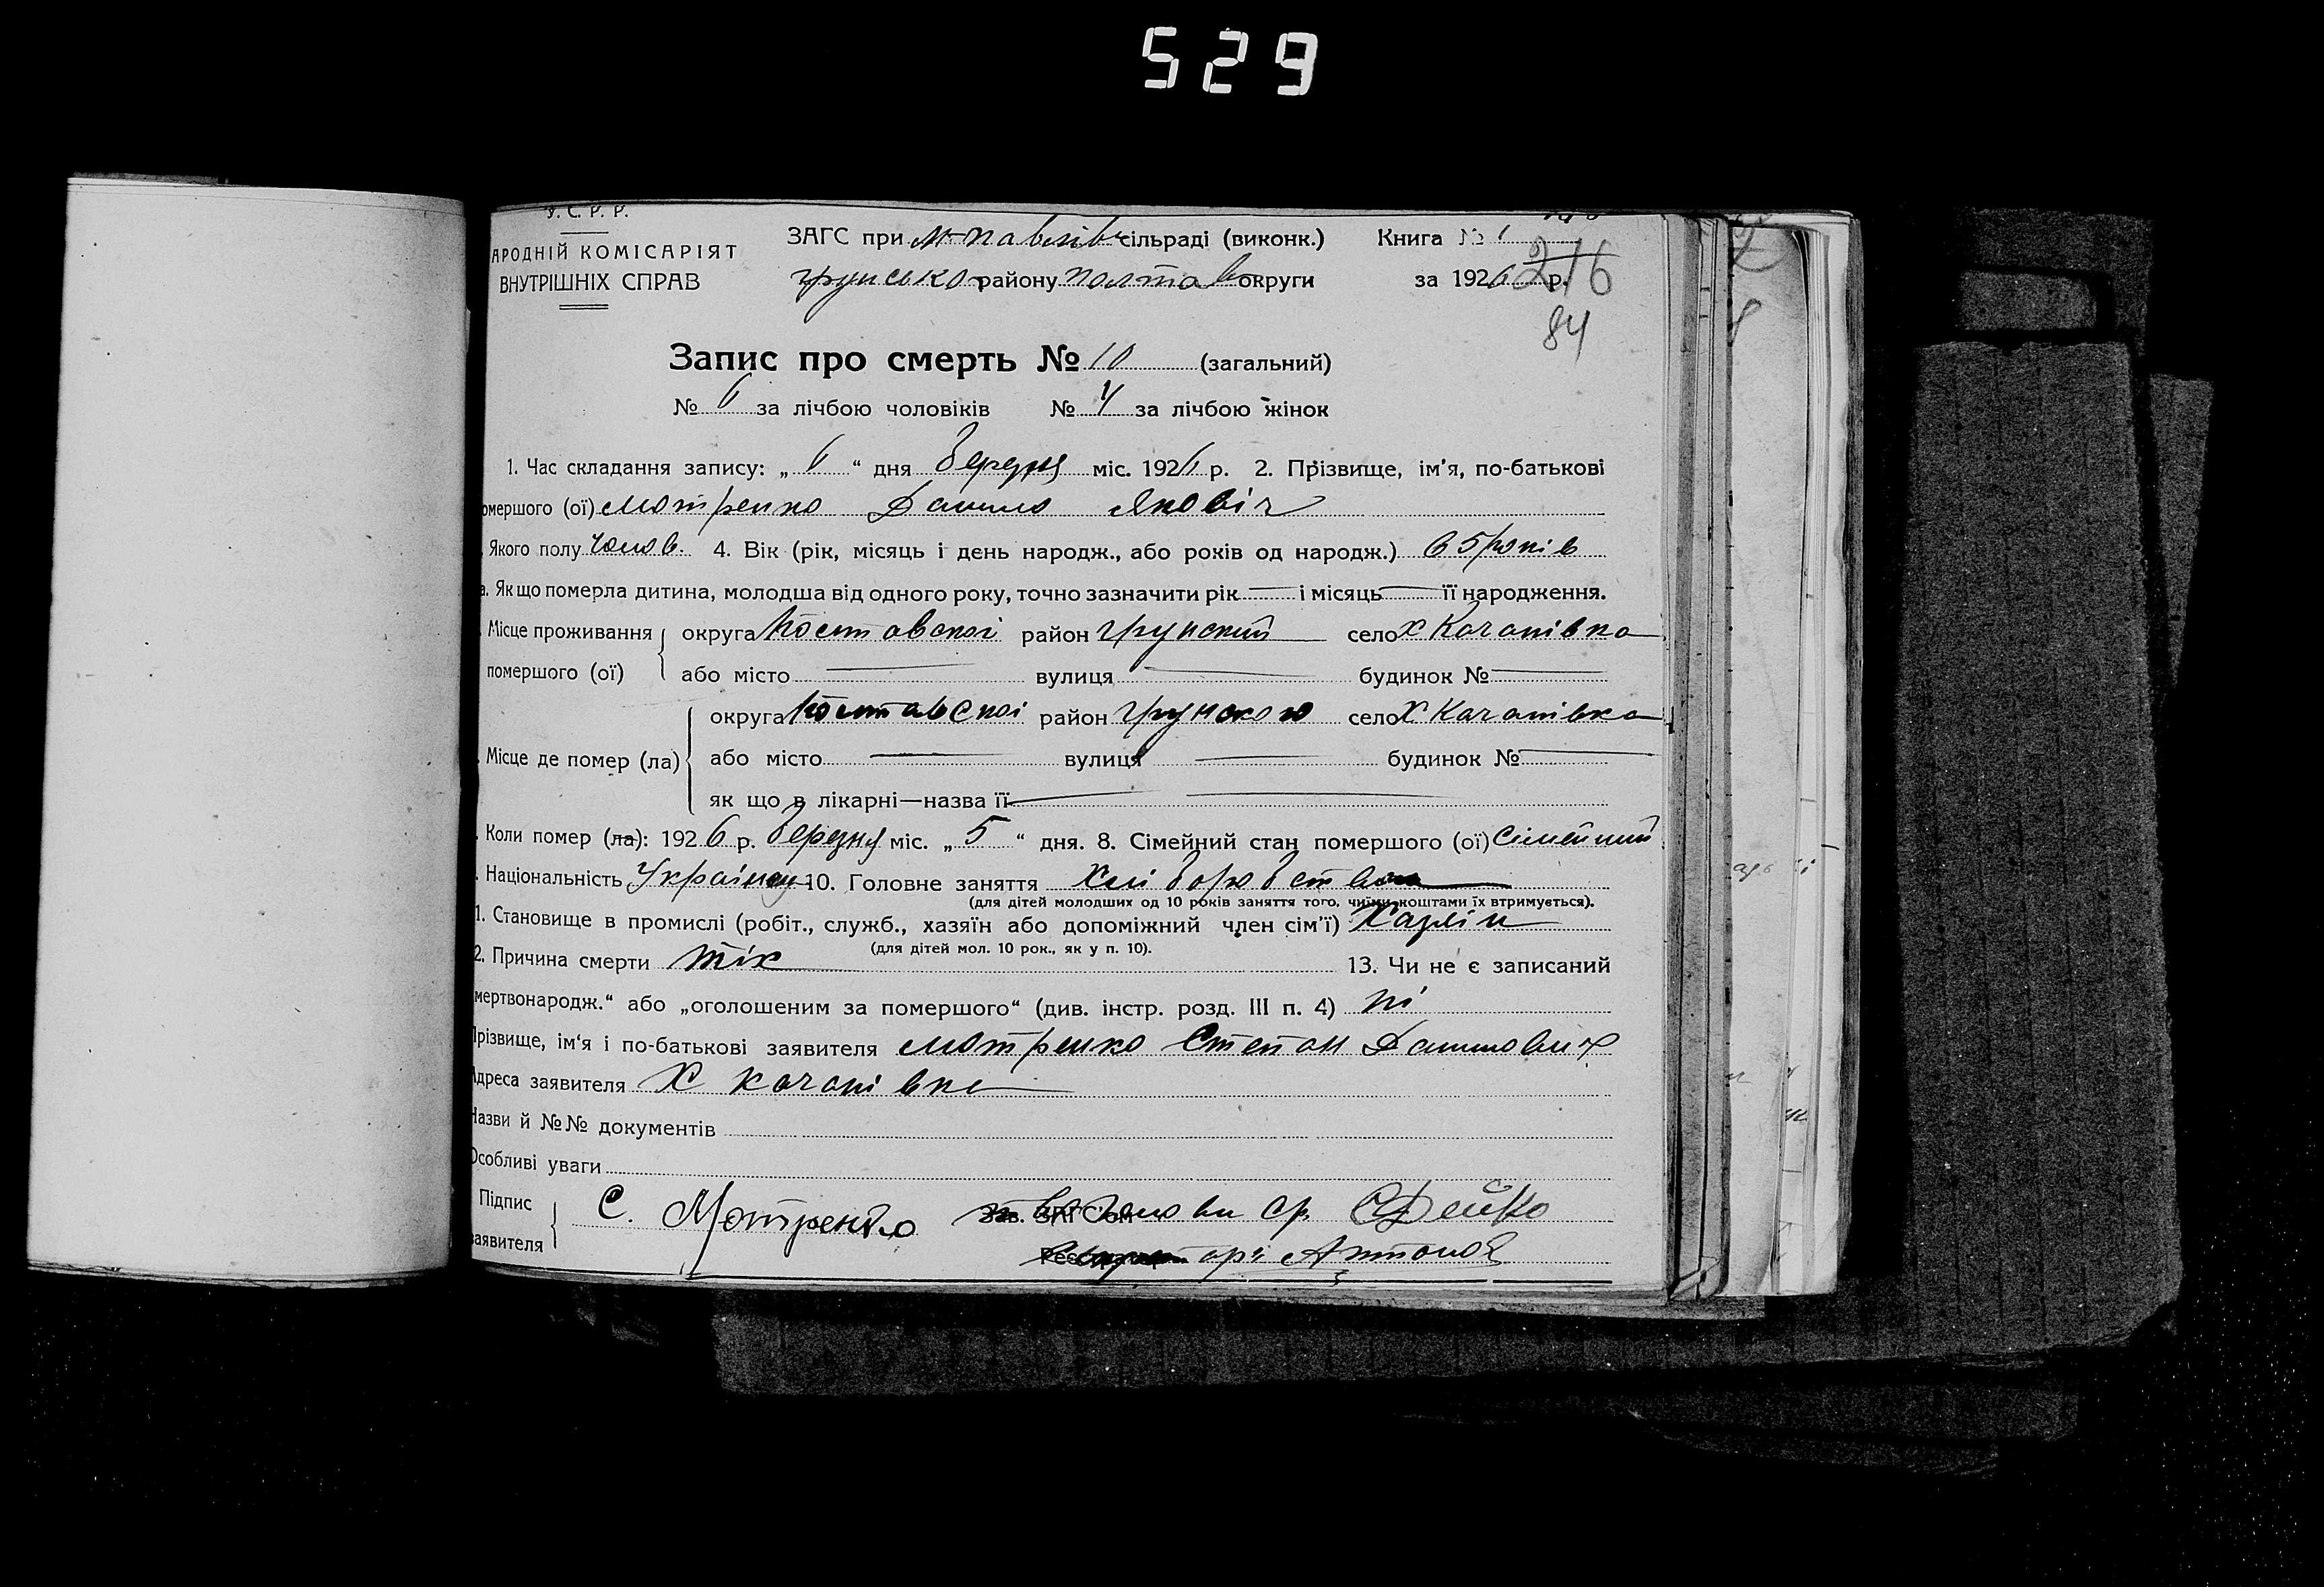 529
У. С. Р. Р.
АРОДНІЙ КОМІСАРІЯТ
ВНУТРІШНІХ СПРАВ
ЗАГС при М-Павлівс сільраді (виконк.)
Книга № 1
грунсько району Полтав округи
за 1926 р.
216
84
Запис про смерть № 10 (загальний)
№ 6 за лічбою чоловіків № 4 за лічбою жінок
1. Час складання запису: „ 6 “ дня березня міс. 1926 р. 2. Прізвище, ім’я, по-батькові
омершого (ої) Мотренко Данило Яковіч
Якого полу чолов. 4. Вік (рік, місяць і день народж., або років од народж.) 65 років
а. Якщо померла дитина, молодша від одного року, точно зазначити рік — і місяць — її народження.
Місце проживання округа Полтавскої район Грунский село Х Качанівка
помершого (ої) або місто — вулиця — будинок № —
округа Полтавскої район Грунского село Х Качанівка
Місце де помер (ла) або місто — вулиця — будинок № —
як що в лікарні—назва її —
Коли помер (ла): 1926 р. березня міс. „ 5 “ дня. 8. Сімейний стан помершого (ої) сімейний
Національність Українец 10. Головне заняття Хліборобство
(для дітей молодших од 10 років заняття того, чиїми коштами їх втримується).
1. Становище в промислі (робіт., служб., хазяїн або допоміжний член сім’ї) Хазяін
(для дітей мол. 10 рок., як у п. 10).
2. Причина смерти тік 13. Чи не є записаний
мертвонародж.“ або „оголошеним за помершого“ (див. інстр. розд. III п. 4) ні
Прізвище, ім‘я і по-батькові заявителя Мотренко Степан Данилович
Адреса заявителя Х Качанівка
Назви й №№ документів
Особливі уваги
Підпис
заявителя
С. Мотренко
Зав. ЗАГС'ом голови ср